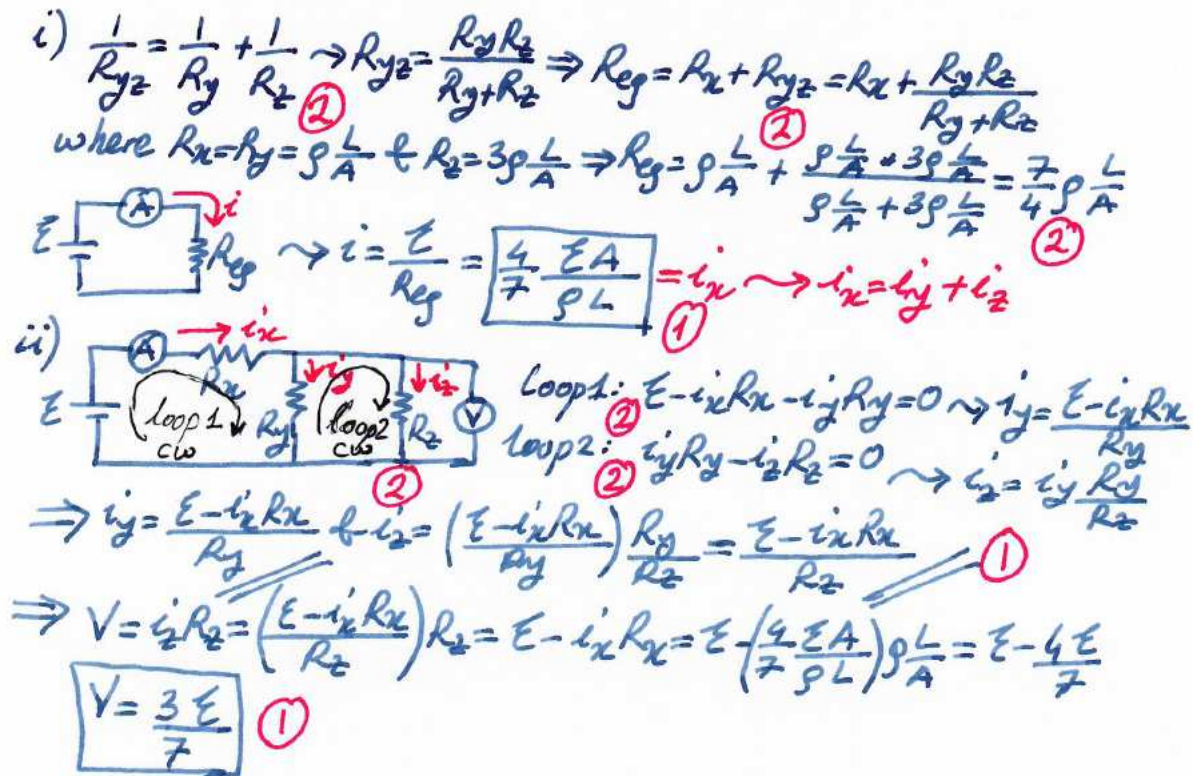 i) 1/R_yz = 1/R_y + 1/R_z ② ⤳ R_yz = R_yR_z/(R_y+R_z) ⇒ R_eq = R_x + R_yz ② = R_x + R_yR_z/(R_y+R_z)
where R_x=R_y=ρ L/A & R_z=3ρ L/A ⇒ R_eq=ρ L/A + (ρ L/A * 3ρ L/A)/(ρ L/A + 3ρ L/A) = 7/4 ρ L/A ②
ℰ A i R_eq ⤳ i = ℰ/R_eq = 4/7 ℰA/ρL = i_x ① ⤳ i_x = i_y + i_z
ii) ℰ A i_x R_x i_y R_y i_z R_z V
loop1 cw
loop2 cw
②
Loop1: ② ℰ-i_xR_x-i_yR_y=0 ⤳ i_y = (ℰ-i_xR_x)/R_y
loop2: ② i_yR_y-i_zR_z=0 ⤳ i_z = i_y R_y/R_z
⇒ i_y = (ℰ-i_xR_x)/R_y & i_z = ((ℰ-i_xR_x)/R_y) R_y/R_z = (ℰ-i_xR_x)/R_z ①
⇒ V = i_zR_z = ((ℰ-i_xR_x)/R_z)R_z = ℰ-i_xR_x = ℰ-(4/7 ℰA/ρL)ρ L/A = ℰ - 4ℰ/7
V = 3ℰ/7 ①